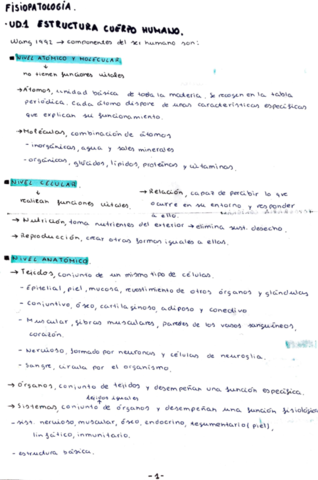 FISIOPATOLOGÍA.
·UD.1 ESTRUCTURA CUERPO HUMANO.
Wang 1992 → componentes del ser humano son:
▪ NIVEL ATÓMICO Y MOLECULAR
↓
no tienen funciones vitales
→ Átomos, unidad básica de toda la materia. Se recogen en la tabla
periódica. Cada átomo dispone de unas características específicas
que explican su funcionamiento.
→ Moléculas, combinación de átomos
- inorgánicas, agua y sales minerales
- orgánicas, glúcidos, lípidos, proteínas y vitaminas.
▪ NIVEL CELULAR
↓
realizan funciones vitales.
→ Relación, capaz de percibir lo que
ocurre en su entorno y responder
a ello.
→ Nutrición, toma nutrientes del exterior → elimina sust. desecho.
→ Reproducción, crear otras formas iguales a ellas.
▪ NIVEL ANATÓMICO
→ Tejidos, conjunto de un mismo tipo de células.
- Epitelial, piel, mucosa, revestimiento de otros órganos y glándulas
- Conjuntivo, óseo, cartilaginoso, adiposo y conectivo
- Muscular, fibras musculares, paredes de los vasos sanguíneos,
corazón.
- Nervioso, formado por neuronas y células de neuroglia.
- Sangre, circula por el organismo.
→ Órganos, conjunto de tejidos y desempeñan una función específica.
tejidos iguales
→ Sistemas, conjunto de órganos y desempeñan una función fisiológica
- sist. nervioso, muscular, óseo, endocrino, tegumentario (piel),
linfático, inmunitario.
- estructura básica.
-1-